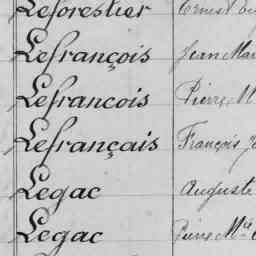 Leforestier Ernest
Lefrançois Jean
Lefrancois Pierre M
Lefrançais François
Legac Auguste
Legac Pierre Mie